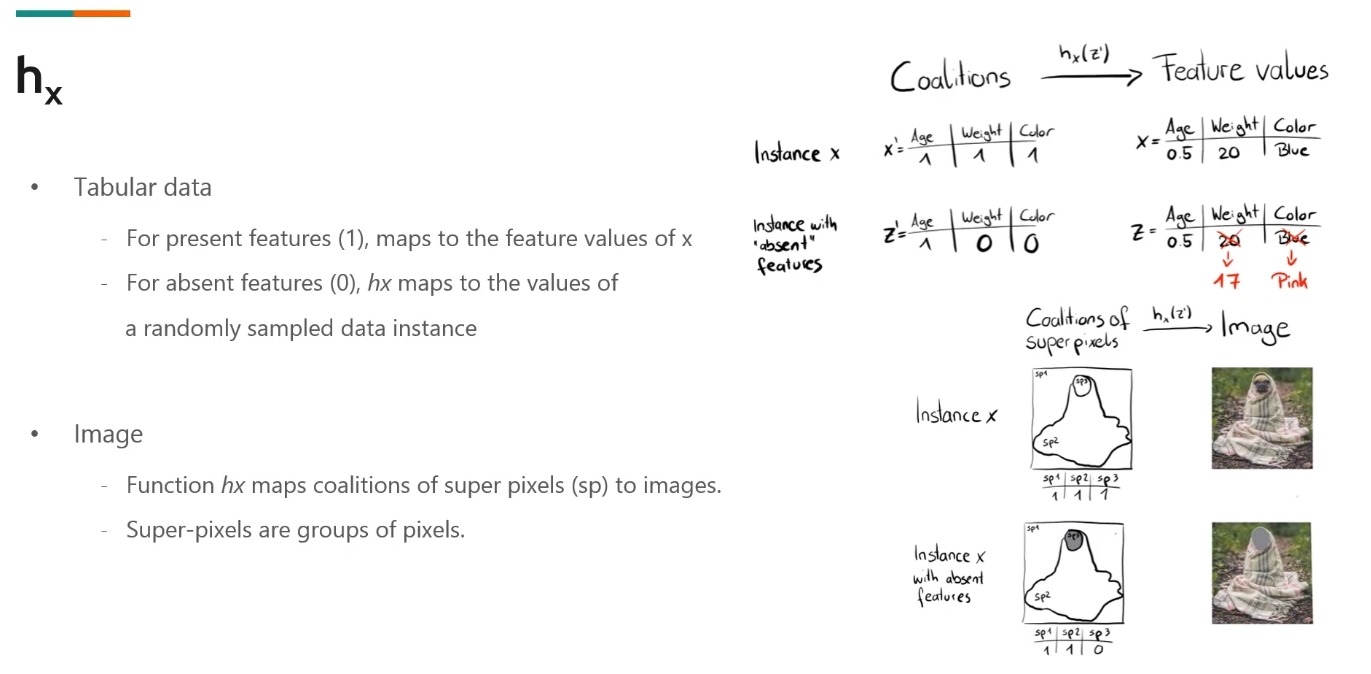 hx
• Tabular data
- For present features (1), maps to the feature values of x
- For absent features (0), hx maps to the values of
a randomly sampled data instance
• Image
- Function hx maps coalitions of super pixels (sp) to images.
- Super-pixels are groups of pixels.
Coalitions hx(z') Feature values
Instance x x'= Age Weight Color x= Age Weight Color
1 1 1 0.5 20 Blue
Instance with "absent" features z'= Age Weight Color z= Age Weight Color
1 0 0 0.5 20 Blue
17 Pink
Coalitions of hx(z') Image
super pixels
Instance x
sp1
sp3
sp2
sp1 sp2 sp3
1 1 1
Instance x
with absent
features
sp1
sp3
sp2
sp1 sp2 sp3
1 1 0